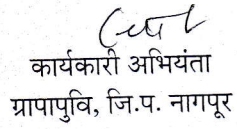 कार्यकारी अभियंता
ग्रापापुवि, जि.प. नागपूर